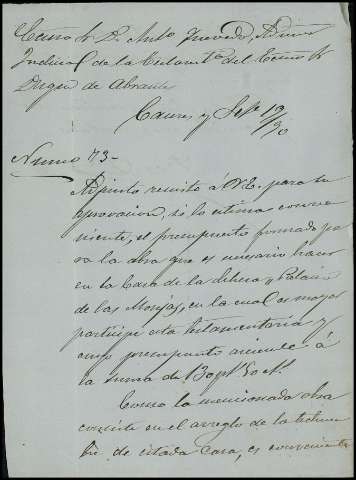 Ecmo Sr. D. Anto Quevedo, Admor
Judicial de la Testamta. del Ecmo Sr.
Duque de Abrantes
Caceres y Sep 19/90
Numo 73-
Adjunto remito á V.E. para su
aprovacion, si lo estima conve
niente, el presupuesto formado pa
ra la obra que es necesario hacer
en la Casa de la dehesa Palacio
de las Monjas, en la cual es mayor
participe esta testamentaria y
cuyo presupuesto asciende á
la suma de 130 pts 50 cts.
Como la mencionada obra
consiste en el arreglo de la techum
bre de citada casa, es conveniente